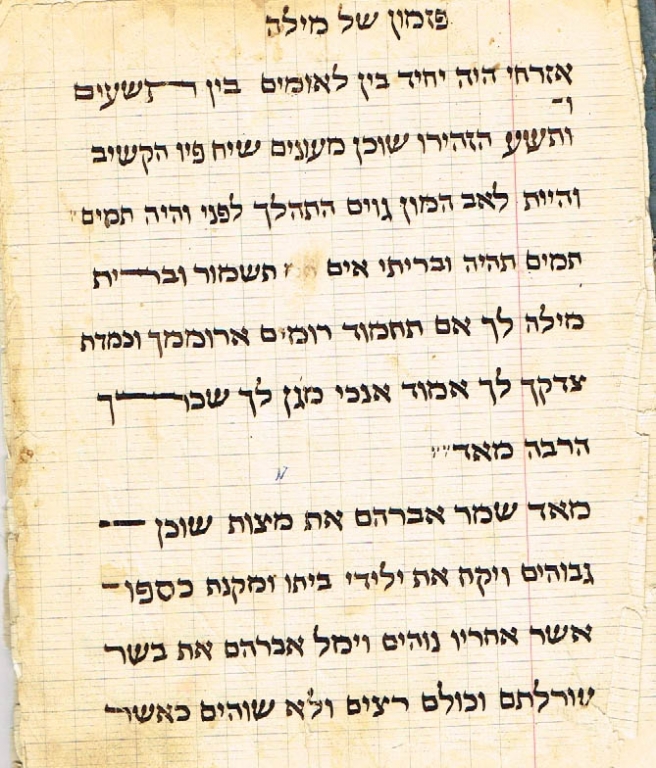 פזמון של מילה
אזרחי היה יחיד בין לאומים בין תשעים
ו-
ותשע הזהירו שוכן מעונים שיח פיו הקשיב
והיית לאב המון גוים התהלך לפני והיה תמים"
תמים תהיה ובריתי אים תשמור וברית
מילה לך אם תחמוד רומים ארוממך וכמדת
צדקך לך אמוד אנכי מגן לך שכרך
הרבה מאד""
מאד שמר אברהם את מצות שוכן -
גבוהים ויקח את ילידי ביתו ומקנת כספו-
אשר אחריו נוהים וימל אברהם את בשר
עורלתם וכולם רצים ולא שוהים כאשר